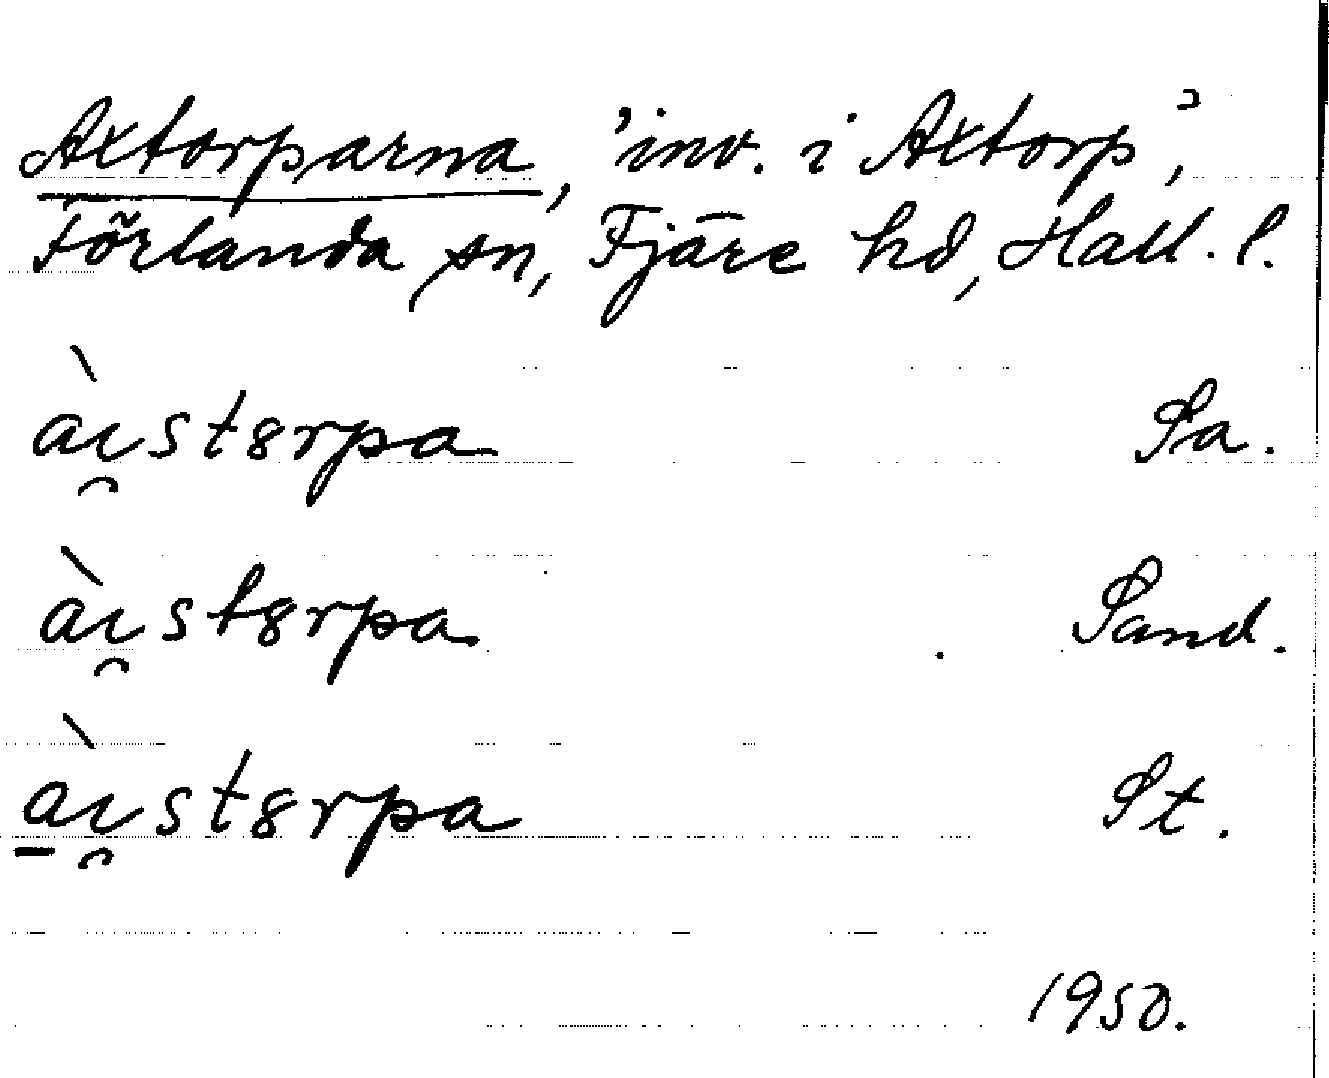 Axtorparna, 'inv. i Axtorp',
Förlanda sn, Fjäre hd, Hall. l.
àı̯stɞrpa Sa.
àı̯stɞrpa Sand.
a̠ı̯̀stɞrpa St.
1950.